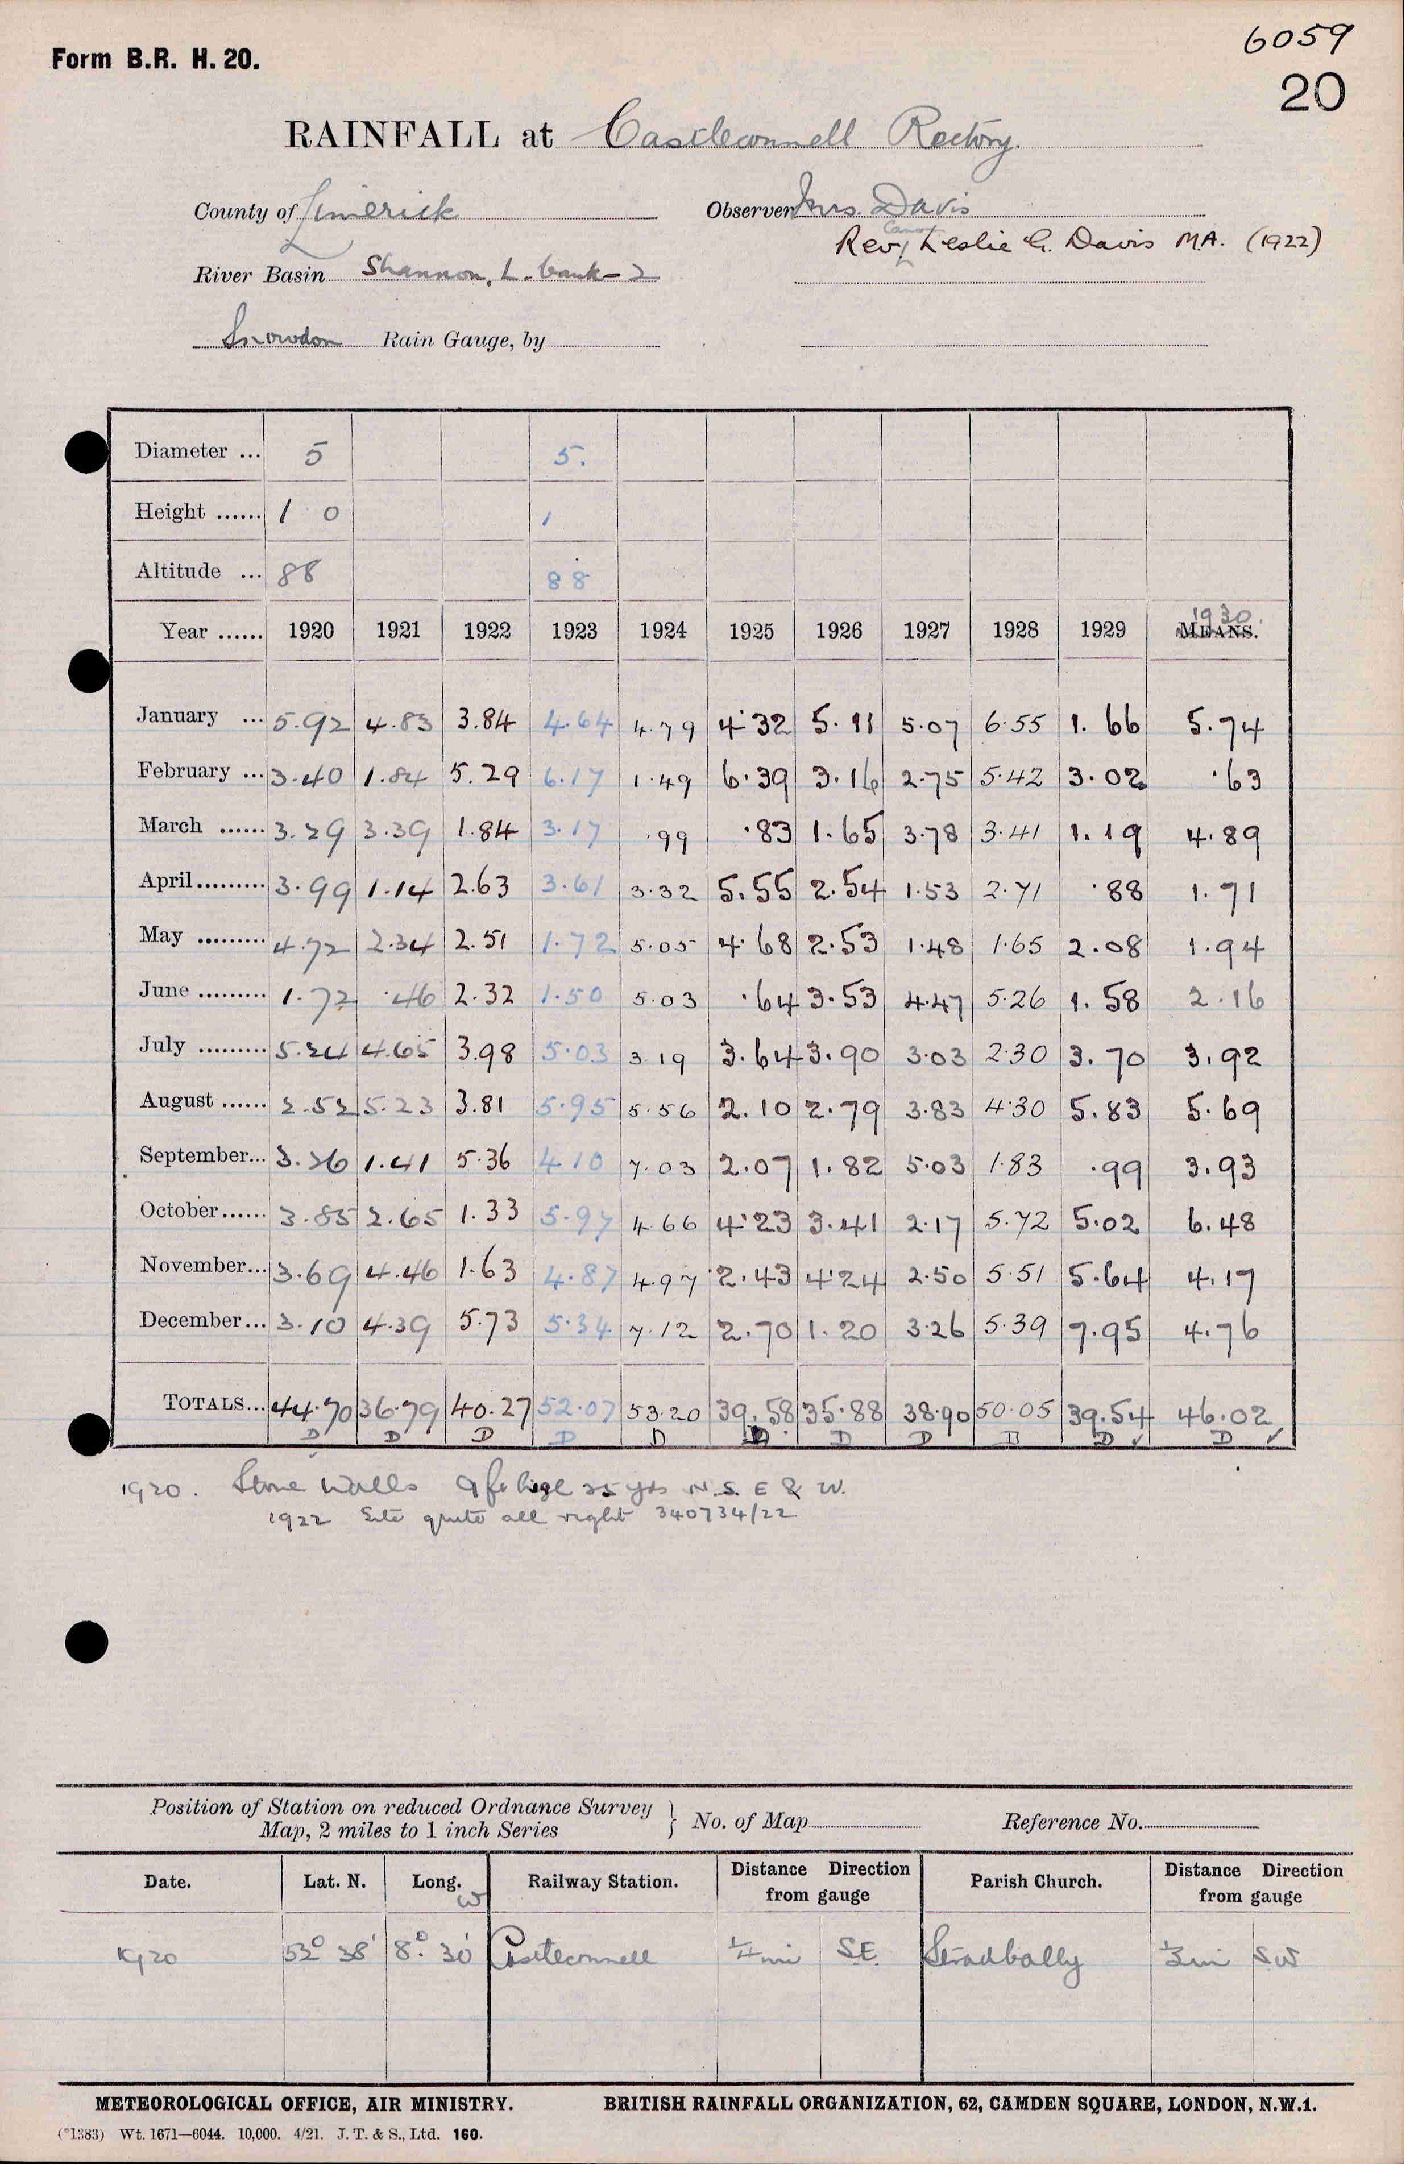 6059
Form B.R. H. 20.
20
RAINFALL at Castleconnell Rectory
County of Limerick Observer Mrs. Davis
Canon
Rev. Leslie G. Davis M.A. (1922)
River Basin Shannon, L. bank - 2
Snowdon Rain Gauge, by
Diameter ... 5 5.
Height ...... 1 0 1
Altitude ... 88 88
1930.
Year ...... 1920 1921 1922 1923 1924 1925 1926 1927 1928 1929 MEANS.
January ... 5.92 4.83 3.84 4.64 4.79 4.32 5.11 5.07 6.55 1.66 5.74
February ... 3.40 1.84 5.29 6.17 1.49 6.39 3.16 2.75 5.42 3.02 .63
March ...... 3.29 3.39 1.84 3.17 .99 .83 1.65 3.78 3.41 1.19 4.89
April ......... 3.99 1.14 2.63 3.61 3.32 5.55 2.54 1.53 2.71 .88 1.71
May ......... 4.72 2.34 2.51 1.72 5.05 4.68 2.53 1.48 1.65 2.08 1.94
June ......... 1.72 .46 2.32 1.50 5.03 .64 3.53 4.47 5.26 1.58 2.16
July ......... 5.24 4.65 3.98 5.03 3.19 3.64 3.90 3.03 2.30 3.70 3.92
August ...... 2.52 5.23 3.81 5.95 5.56 2.10 2.79 3.83 4.30 5.83 5.69
September... 3.26 1.41 5.36 4.10 7.03 2.07 1.82 5.03 1.83 .99 3.93
October...... 3.85 2.65 1.33 5.97 4.66 4.23 3.41 2.17 5.72 5.02 6.48
November... 3.69 4.46 1.63 4.87 4.97 2.43 4.24 2.50 5.51 5.64 4.17
December... 3.10 4.39 5.73 5.34 7.12 2.70 1.20 3.26 5.39 7.95 4.76
TOTALS... 44.70 36.79 40.27 52.07 53.20 39.58 35.88 38.90 50.05 39.54 46.02
D D D D D D D D D D ✓ D ✓
1920. Stone Walls 9 ft high 25 yds N. S. E & W.
1922 Site quite all right 340734/22
Position of Station on reduced Ordnance Survey Map, 2 miles to 1 inch Series } No. of Map Reference No.
Date. Lat. N. Long. W Railway Station. Distance Direction from gauge Parish Church. Distance Direction from gauge
1920 52° 38' 8° 30' Castleconnell ¼ mi S.E. Stradbally ⅓ mi SW
METEOROLOGICAL OFFICE, AIR MINISTRY. BRITISH RAINFALL ORGANIZATION, 62, CAMDEN SQUARE, LONDON, N.W.1.
(*1383) Wt. 1671—6044. 10,000. 4/21. J. T. & S., Ltd. 160.